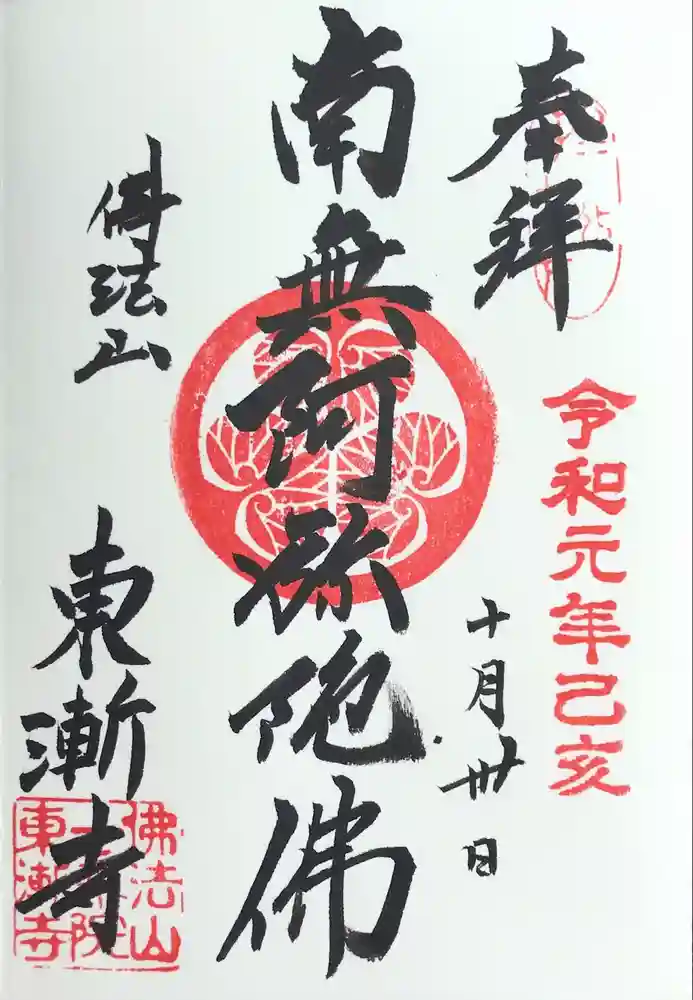 奉拜
令和元年己亥
十月卅日
南無阿弥陀佛
佛法山
東漸寺
佛法山
東漸寺